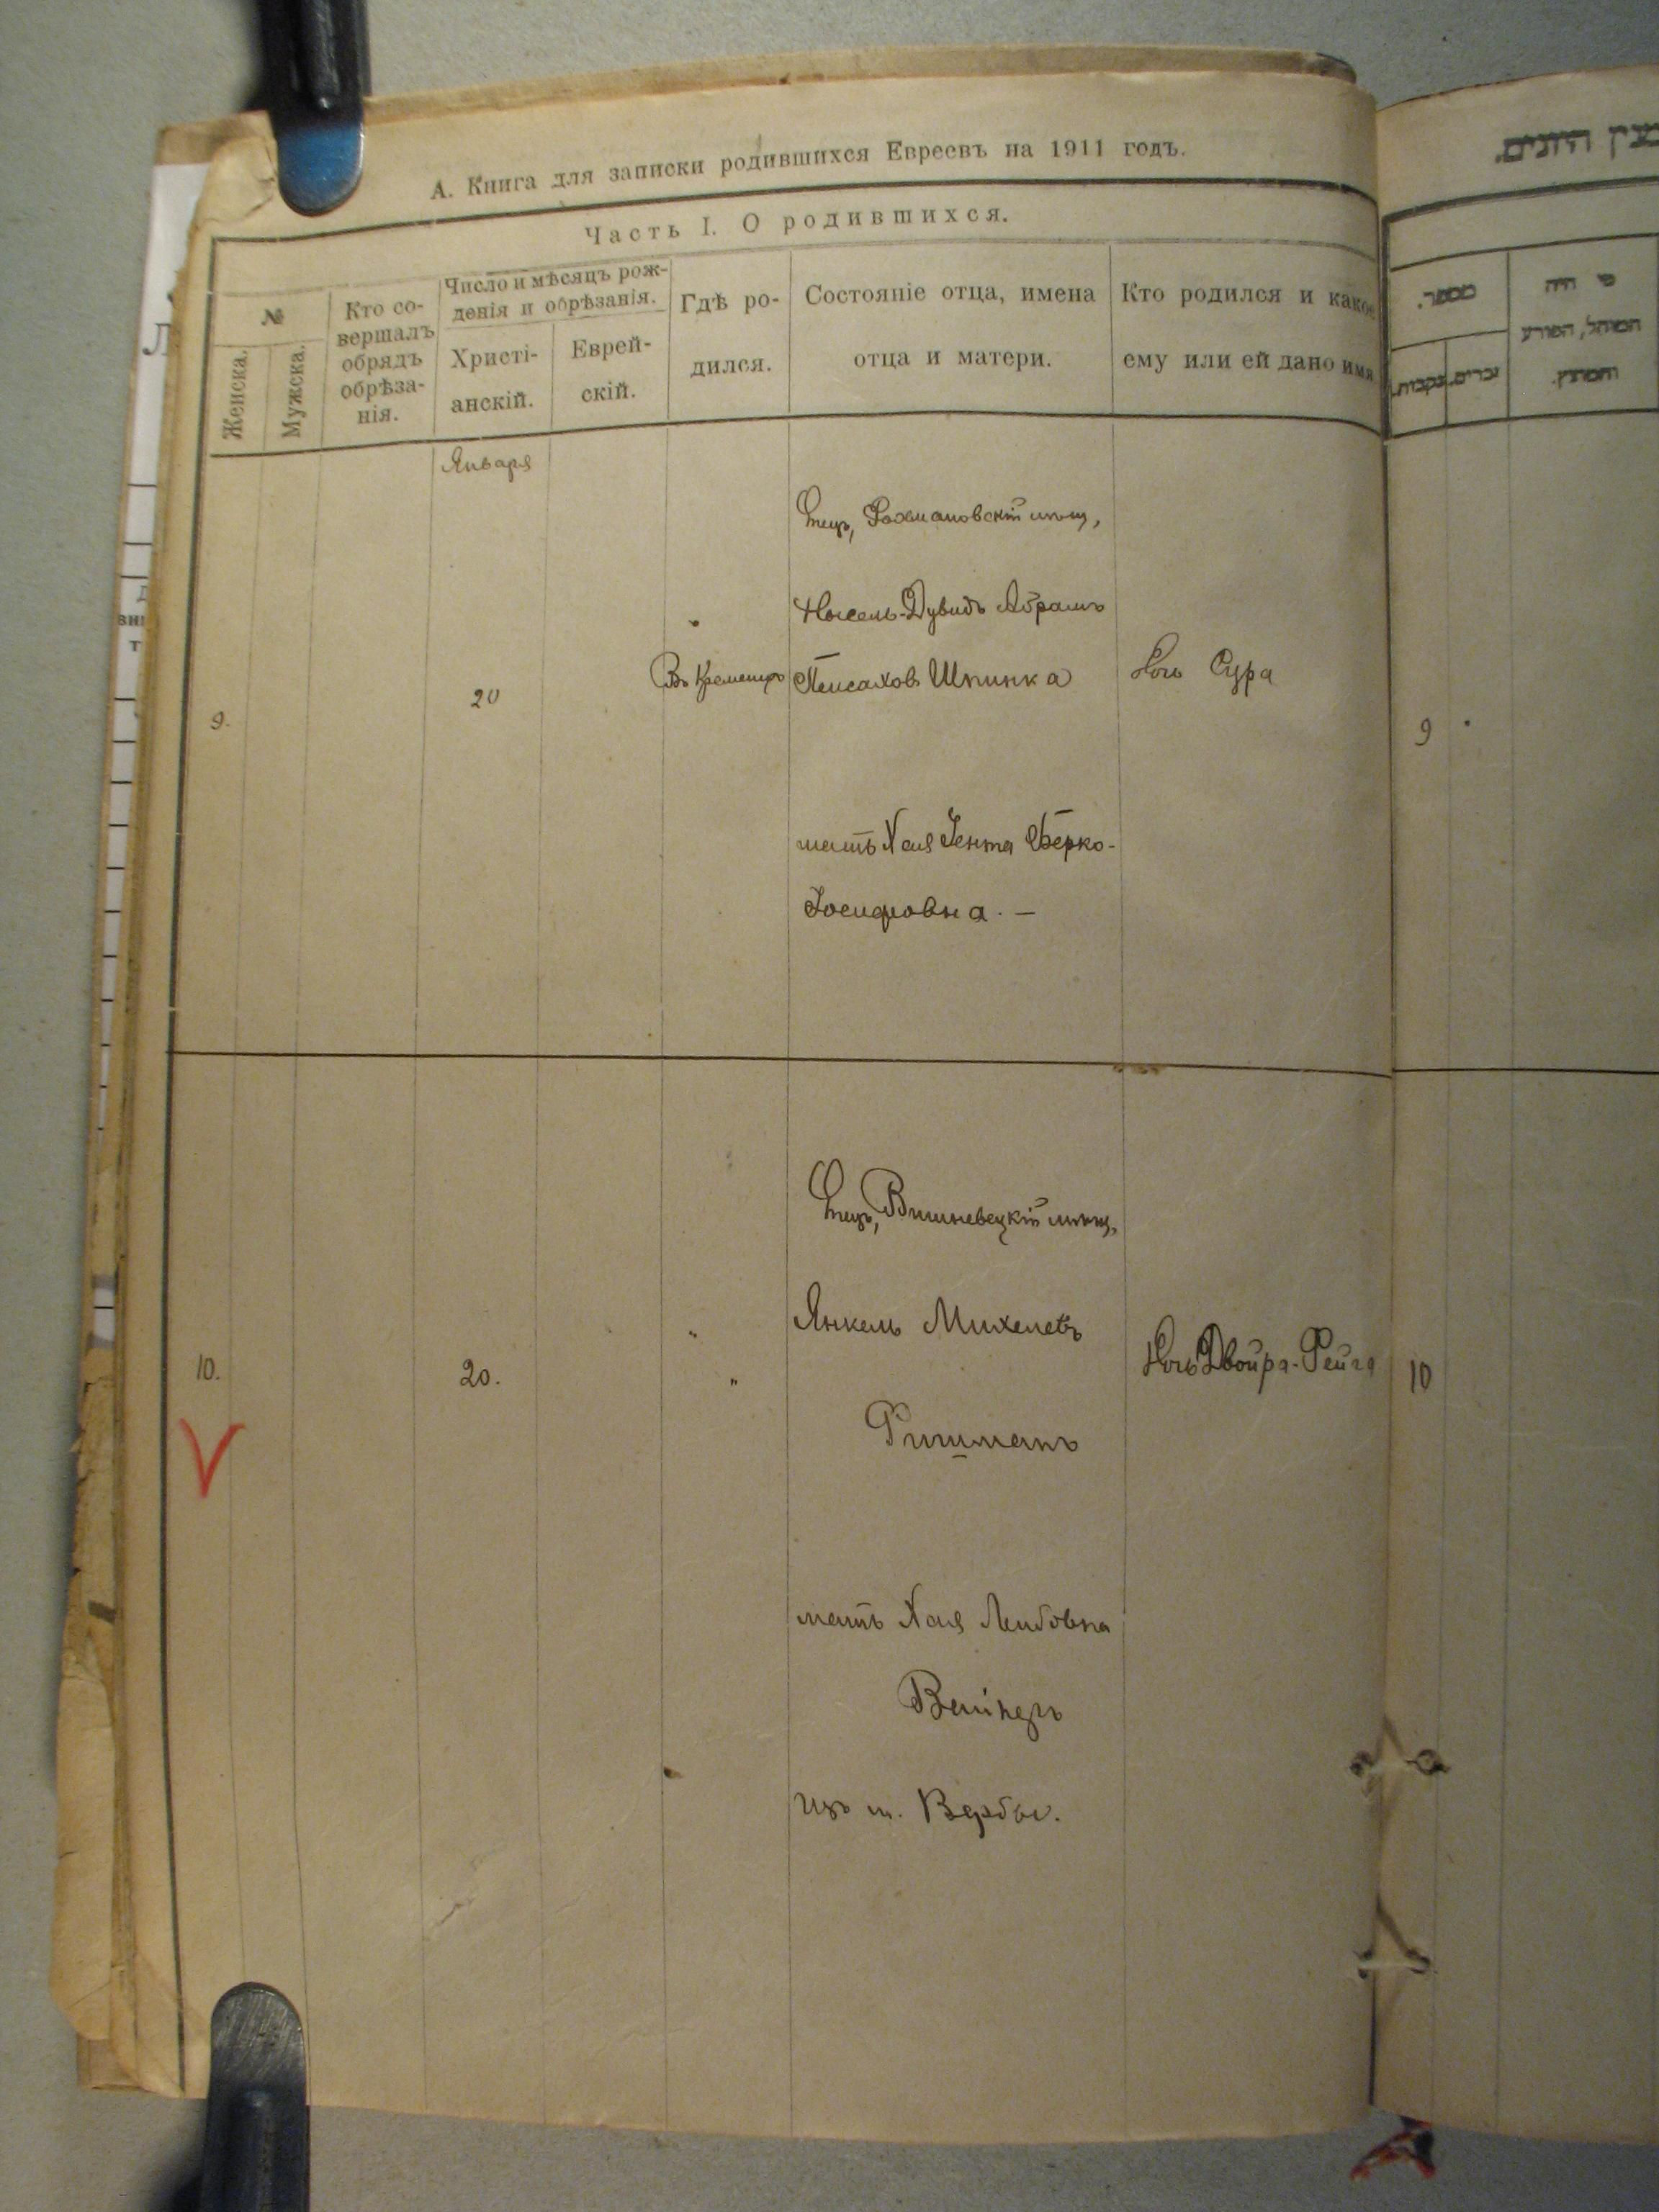 А. Книга для записки родившихся Евреевъ на 1911 годъ.
Часть I. О родившихся.
№
Женска.
Мужска.
Кто со-
вершалъ
обрядъ
обрѣза-
нія.
Число и мѣсяцъ рож-
денія и обрѣзанія.
Христі-
анскій.
Еврей-
скій.
Гдѣ ро-
дился.
Состояніе отца, имена
отца и матери.
Кто родился и какое
ему или ей дано имя
Января
9.
20
Въ Кременцѣ
Отецъ, Рахмановскій мѣщ,
Дувидъ Абрамъ
Пейсахов Шпинка
мать Хая Гента Берко-
Іосифовна. —
Дочь Сура
10.
20.
"
"
Отецъ, Вишневецкій мѣщ,
Янкель Михелевъ
Фишманъ
мать Хая Лейбовна
Вайнеръ
изъ м. Вербы.
Дочь Двойра-Фейга
היונים.
מספר.
נקבות.
זכרים.
מי היה
המוהל, הפורע
והמוצץ.
9
10